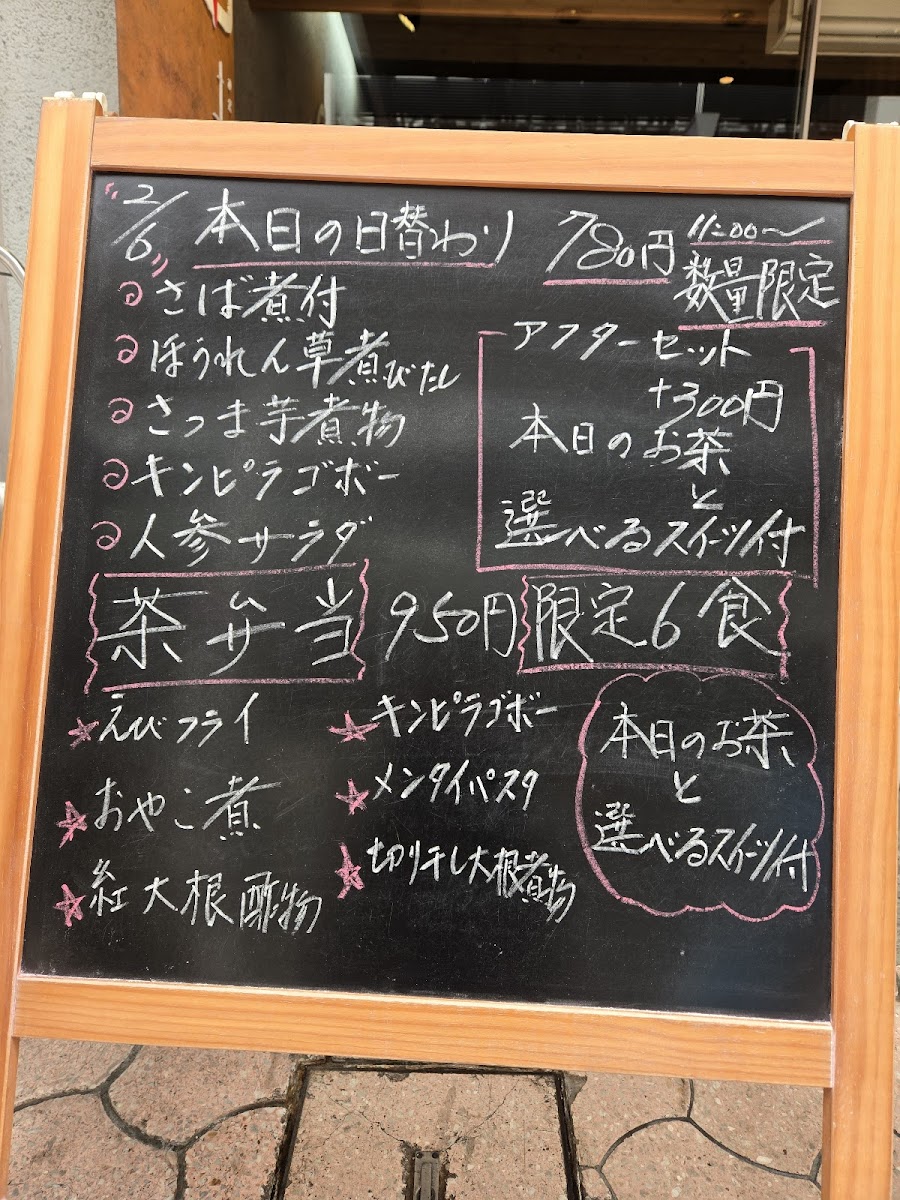 2/6 本日の日替わり 780円 11:00〜
数量限定
さば煮付
ほうれん草煮びたし
さつま芋煮物
キンピラゴボー
人参サラダ
アフターセット
+300円
本日のお茶
と
選べるスイーツ付
茶弁当 950円 限定6食
えびフライ
おやこ煮
紅大根酢物
キンピラゴボー
メンタイパスタ
切り干し大根煮物
本日のお茶
と
選べるスイーツ付